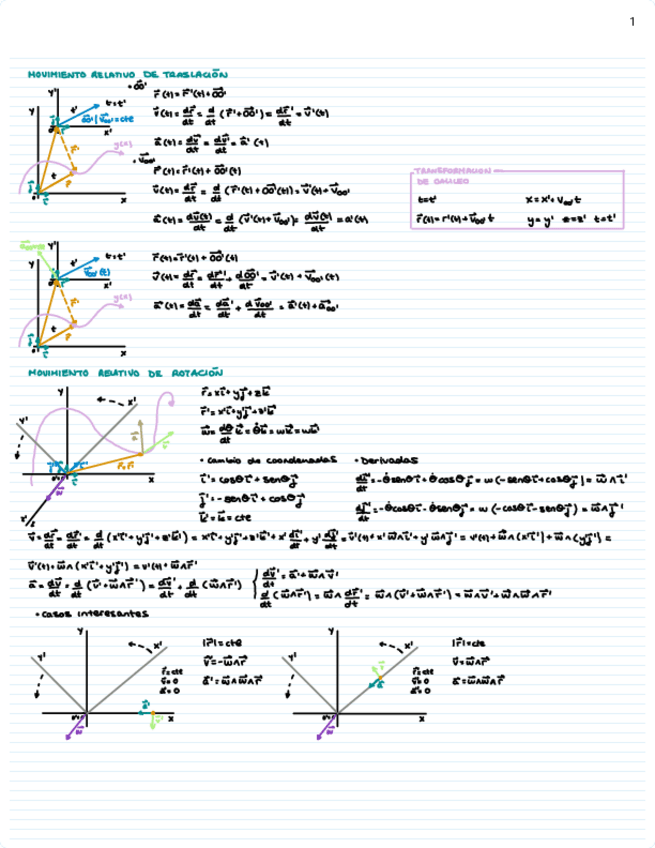 1
MOVIMIENTO RELATIVO DE TRASLACIÓN
• OO'
r(t) = r'(t) + OO'
v(t) = dr/dt = d/dt (r' + OO') = dr'/dt = v'(t)
a(t) = dv/dt = dv'/dt = a'(t)
• v₀₀'
r(t) = r'(t) + OO'(t)
v(t) = dr/dt = d/dt (r'(t) + OO'(t)) = v'(t) + v₀₀'
a(t) = dv(t)/dt = d/dt (v'(t) + v₀₀') = dv'(t)/dt = a'(t)
TRANSFORMACION
DE GALILEO
t=t' x=x'+v₀₀'t
r(t)=r'(t)+v₀₀'t y=y' z=z' t=t'
r(t) = r'(t) + OO'(t)
v(t) = dr/dt = dr'/dt + dOO'/dt = v'(t) + v₀₀'(t)
a(t) = dv/dt = dv'/dt + dv₀₀'/dt = a'(t) + a₀₀'
MOVIMIENTO RELATIVO DE ROTACIÓN
r = xi + yj + zk
r' = x'i' + y'j' + z'k'
w = dθ/dt k = θ̇k = wk = wk'
• cambio de coordenadas
i' = cosθi + senθj
j' = -senθi + cosθj
k' = k = cte
• Derivadas
di'/dt = -θ̇senθi + θ̇cosθj = w(-senθi + cosθj) = w∧i'
dj'/dt = -θ̇cosθi - θ̇senθj = w(-cosθi - senθj) = w∧j'
v = dr/dt = dr'/dt = d/dt (x'i' + y'j' + z'k') = x'i' + y'j' + z'k' + x' di'/dt + y' dj'/dt = v'(t) + x'w∧i' + y'w∧j' = v'(t) + w∧(x'i') + w∧(y'j') =
v'(t) + w∧(x'i' + y'j') = v'(t) + w∧r'
a = dv/dt = d/dt (v' + w∧r') = dv'/dt + d/dt (w∧r')
dv'/dt = a' + w∧v'
d/dt (w∧r') = w∧dr'/dt = w∧(v' + w∧r') = w∧v' + w∧w∧r'
• casos interesantes
|r| = cte
v' = -w∧r
a' = w∧w∧r
r = cte
v = 0
a = 0
|r| = cte
v = w∧r
a = w∧w∧r
r = cte
v = 0
a = 0